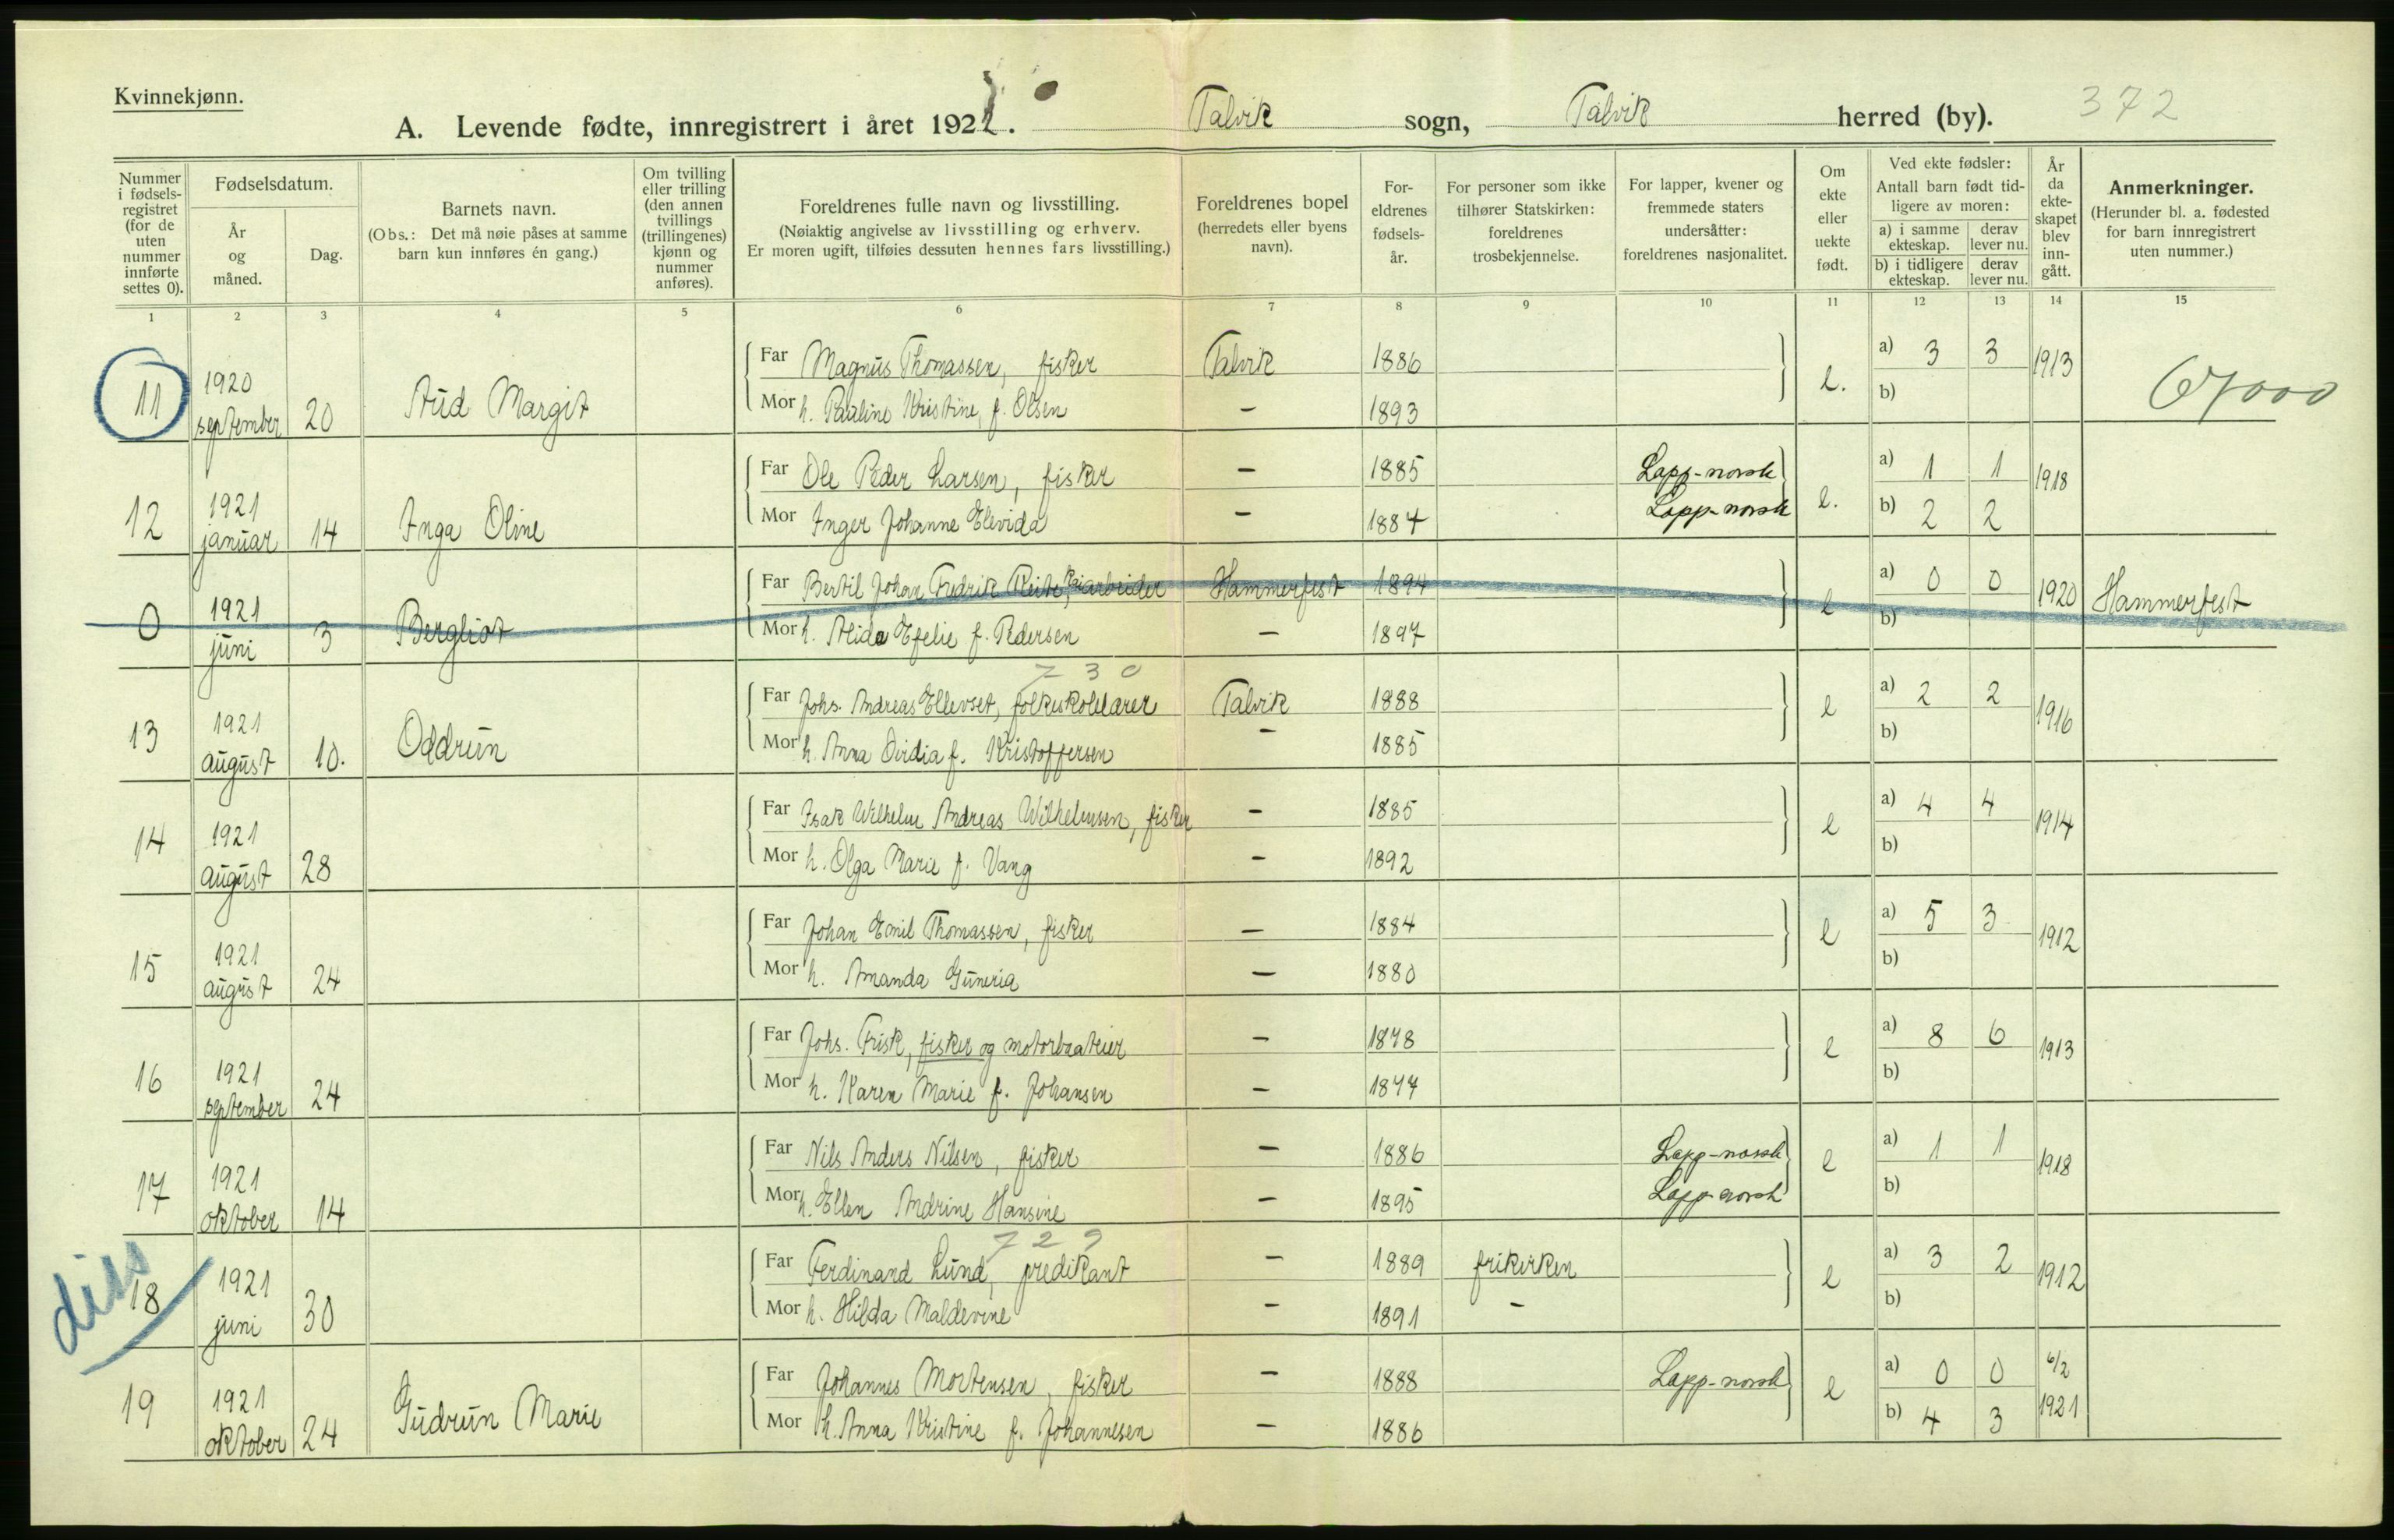 Kvinnekjønn.
A. Levende fødte, innregistrert i året 1921. Talvik sogn, Talvik herred (by). 372
Nummer i fødsels-registret (for de uten nummer innførte settes 0).
Fødselsdatum.
År og måned.
Dag.
Barnets navn.
(Obs.: Det må nøie påses at samme barn kun innføres én gang.)
Om tvilling eller trilling (den annen tvillings (trillingenes) kjønn og nummer anføres).
Foreldrenes fulle navn og livsstilling.
(Nøiaktig angivelse av livsstilling og erhverv.
Er moren ugift, tilføies dessuten hennes fars livsstilling.)
Foreldrenes bopel (herredets eller byens navn).
For-eldrenes fødsels-år.
For personer som ikke tilhører Statskirken: foreldrenes trosbekjennelse.
For lapper, kvener og fremmede staters undersåtter: foreldrenes nasjonalitet.
Om ekte eller uekte født.
Ved ekte fødsler:
Antall barn født tid-ligere av moren:
a) i samme ekteskap. derav lever nu.
b) i tidligere ekteskap. derav lever nu.
År da ekte-skapet blev inn-gått.
Anmerkninger.
(Herunder bl. a. fødested for barn innregistrert uten nummer.)
1 2 3 4 5 6 7 8 9 10 11 12 13 14 15
11 1920 september 20 Aud Margit
Far Magnus Thomassen, fisker Talvik 1886 e. a) 3 3 1913
Mor h. Pauline Kristine, f. Olsen – 1893 b)
12 1921 januar 14 Inga Oline
Far Ole Peder Larsen, fisker – 1885 Lapp-norsk e. a) 1 1 1918
Mor Inger Johanne Elevida – 1887 Lapp-norsk b) 2 2
0 1921 juni 3 Bergliot
Far Bertil Johan Fredrik Kaiarbeider Hammerfest 1894 e a) 0 0 1920 Hammerfest
Mor h. Alida Efelie f. Pedersen – 1897 b)
730
13 1921 august 10. Oddrun
Far Johs. Andreas Ellevset, folkeskolelærer Talvik 1888 e a) 2 2 1916
Mor h. Anna Ovidia f. Kristoffersen – 1885 b)
14 1921 august 28
Far Isak Wilhelm Andreas Wilhelmsen, fisker – 1885 e a) 4 4 1914
Mor h. Olga Marie f. Vang – 1892 b)
15 1921 august 24
Far Johan Emil Thomassen, fisker – 1884 e a) 5 3 1912
Mor h. Amanda Guneria – 1880 b)
16 1921 september 24
Far Johs. Frisk, fisker og motorbaateier – 1878 e a) 8 6 1913
Mor h. Karen Marie f. Johansen – 1877 b)
17 1921 oktober 14
Far Nils Anders Nilsen, fisker – 1886 Lapp-norsk e a) 1 1 1918
Mor h. Ellen Andrine Hansine – 1895 Lapp-norsk b)
729
diss
18 1921 juni 30
Far Ferdinand Lund, predikant – 1889 frikirken e a) 3 2 1912
Mor h. Hilda Maldevine – 1891 – b)
19 1921 oktober 24 Gudrun Marie
Far Johannes Mortensen, fisker – 1888 Lapp-norsk e a) 0 0 6/2 1921
Mor h. Anna Kristine f. Johannesen – 1886 b) 4 3